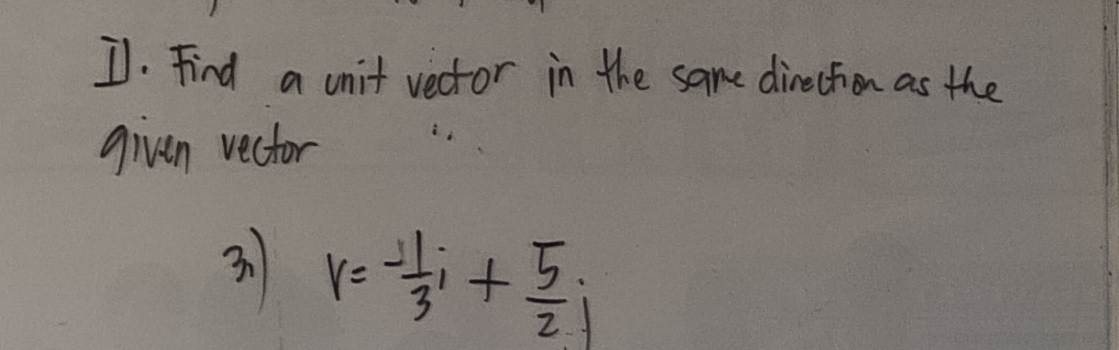 II. Find a unit vector in the same direction as the
given vector
3.) v = -1/3 i + 5/2 j